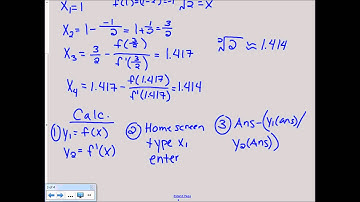 x₁=1
f(1)=(1-2)=-1
√2=x
x₂=1-\frac{-1}{2}=1+\frac{1}{2}=\frac{3}{2}
x₃=\frac{3}{2}-\frac{f(\frac{3}{2})}{f'(\frac{3}{2})}=1.417
²√2≈1.414
x₄=1.417-\frac{f(1.417)}{f'(1.417)}=1.414
Calc.
① y₁=f(x)
y₂=f'(x)
② Homescreen
type x₁
enter
③ Ans-(y₁(ans)/
y₂(Ans))